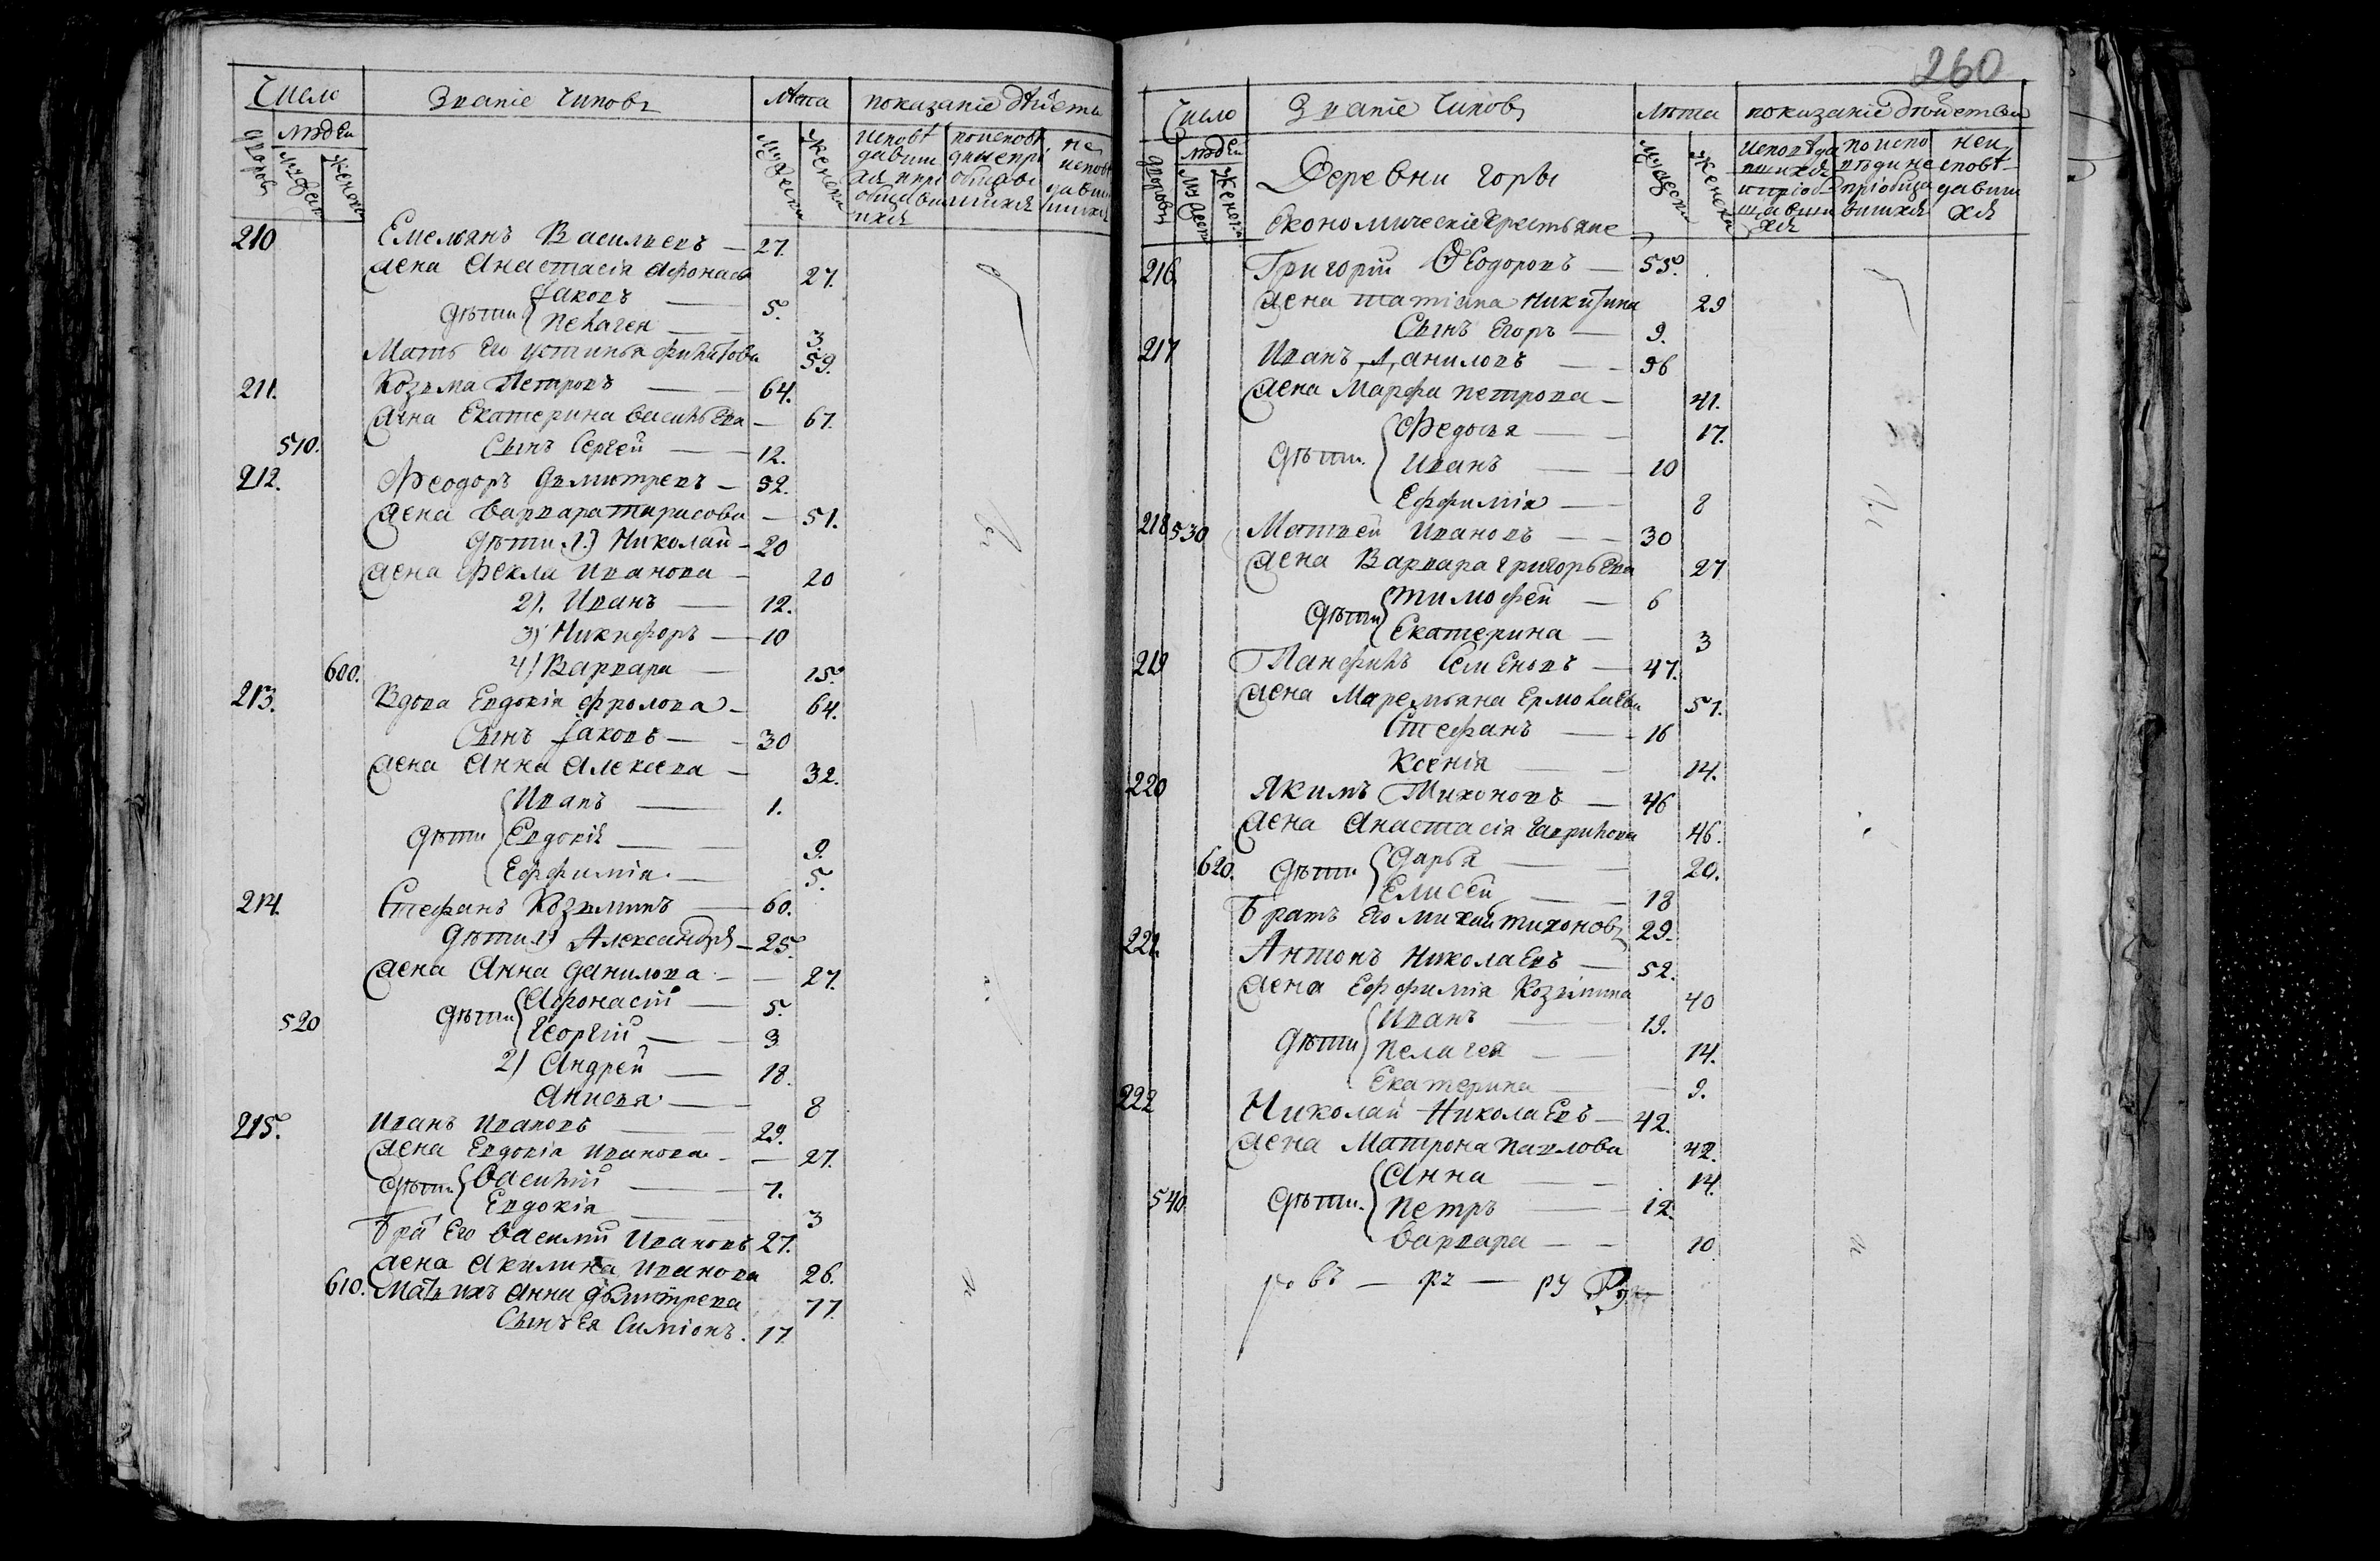 Число Званіе Чиновъ Лѣта показаніе дѣйства
дворовъ людей мужеска женска
мужеска женска исповѣдавшихся и пріобщавшихся по исповѣди не пріобщавшихся не исповѣдавшихся
210 Емельянъ Васильевъ — 27.
Жена Анастасія Афонасва 27.
Дѣти Іаковъ — 5.
Пелагея — 3.
Мать его Устинья Филатова 59.
211. Козьма Петровъ — 64.
Жена Екатерина Васильева — 67.
510. Сынъ Сергей — 12.
212. Феодоръ Дьмитревъ — 52.
Жена Варвара Тарасова — 51.
Дѣти 1) Николай — 20
Жена Фекла Иванова — 20
2). Иванъ — 12.
3) Никифоръ — 10
600. 4) Варвара — 15.
213. Вдова Евдокія Фролова — 64.
Сынъ Іаковъ — 30
Жена Анна Алексева — 32.
Иванъ — 1.
Дѣти Евдокія — 9.
Ефѳимія — 5.
214. Стефанъ Козьминъ — 60.
Дѣти 1) Александръ — 25.
Жена Анна Данилова — 27.
Дѣти Афонасій — 5.
520 Георгій — 3
2) Андрей — 18.
Анисья — 8
215. Иванъ Ивановъ — 29.
Жена Евдокія Иванова — 27.
Дѣти Василій — 7.
Евдокія — 3
Бра его Василій Ивановъ 27.
Жена Акилина Иванова 26.
610. Мать ихъ Анна Дьмитрева 77.
Сынъ ея Симіонъ. 17.
260
Число Званіе Чиновъ Лѣта показаніе дѣйства
дворовъ людей мужеска женска
мужеска женска исповѣдавшихся и пріобщавшихся по исповѣди не пріобщавшихся неисповѣдавшихся
Деревни Горы
Экономическіе Крестьяне
216. Григорій Ѳеодоровъ — 55.
Жена Татіана Никитина 29
Сынъ Егоръ — 9.
217 Иванъ Даниловъ — 56
Жена Марфа Петрова — 41.
Федосья — 17.
Дѣти. Иванъ — 10
Ефѳимія — 8
218 530 Матвей Ивановъ — 30
Жена Варвара Григорьева 27
Дѣти Тимофей — 6
Екатерина — 3
219 Панфилъ Семеновъ — 47.
Жена Маремьяна Ермолаева 51.
Стефанъ — 16
Ксенія — 14.
220 Якимъ Тихоновъ — 46
Жена Анастасія Гаврилова 46.
620. Дѣти Дарья — 20.
Елисей — 18
Братъ его Михаи Тихоновъ 29.
221. Антонъ Николаевъ — 52.
Жена Ефѳимія Козьмина 40
Иванъ — 19.
Дѣти Пелагея — 14.
Екатерина — 9.
222 Николай Николаевъ — 42.
Жена Матрона Павлова 42.
Анна — 14.
540 Дѣти. Петръ — 12.
Варвара — 10.